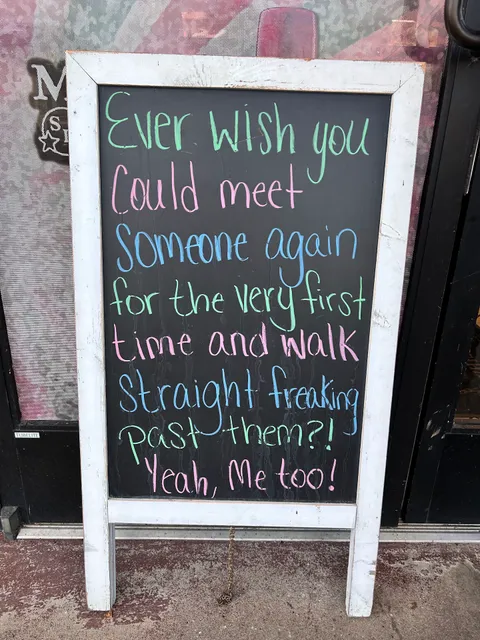 Ever wish you
Could meet
Someone again
for the very first
time and walk
straight freaking
past them?!
Yeah, Me too!